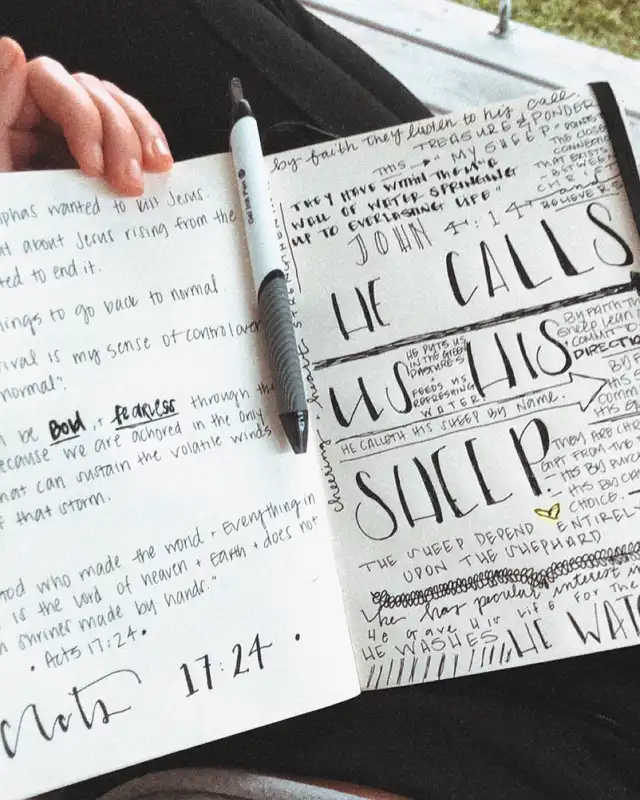 wanted to kill Jesus.
about Jesus rising from the
to end it.
to go back to normal.
is my sense of control over
normal".
be Bold + fearless through the
because we are achored in the only
that can sustain the volatile winds
that storm.
God who made the world + Everything in
is the Lord of heaven + Earth + does not
shrines made by hands."
• Acts 17:24 •
Acts 17:24 •
by faith they listen to his call
TREASURE + PONDER
THIS → "MY SHEEP" POINTS
THE CLOSE
CONNECTION
THAT EXISTS
BETWEEN
CHRIST
and
BELIEVERS
THEY HAVE WITHIN THEM "A
WALL OF WATER SPRINGING
UP TO EVERLASTING LIFE"
JOHN 4:14
HE CALLS
US HIS
HE PUTS US
IN THE GREEN
PASTURES
+
FEEDS US
REFRESHING
WATER
BY FAITH
sheep
DIRECTION
BY
HIS
HE CALLETH HIS SHEEP BY NAME.
SHEEP
THEY ARE
GIFT FROM THE
- HIS BY
- HIS BY
CHOICE.
THE SHEEP DEPEND ENTIREL
UPON THE SHEPHARD
he has peculiar interest
He Gave His Life FOR THE
HE WASHES HE